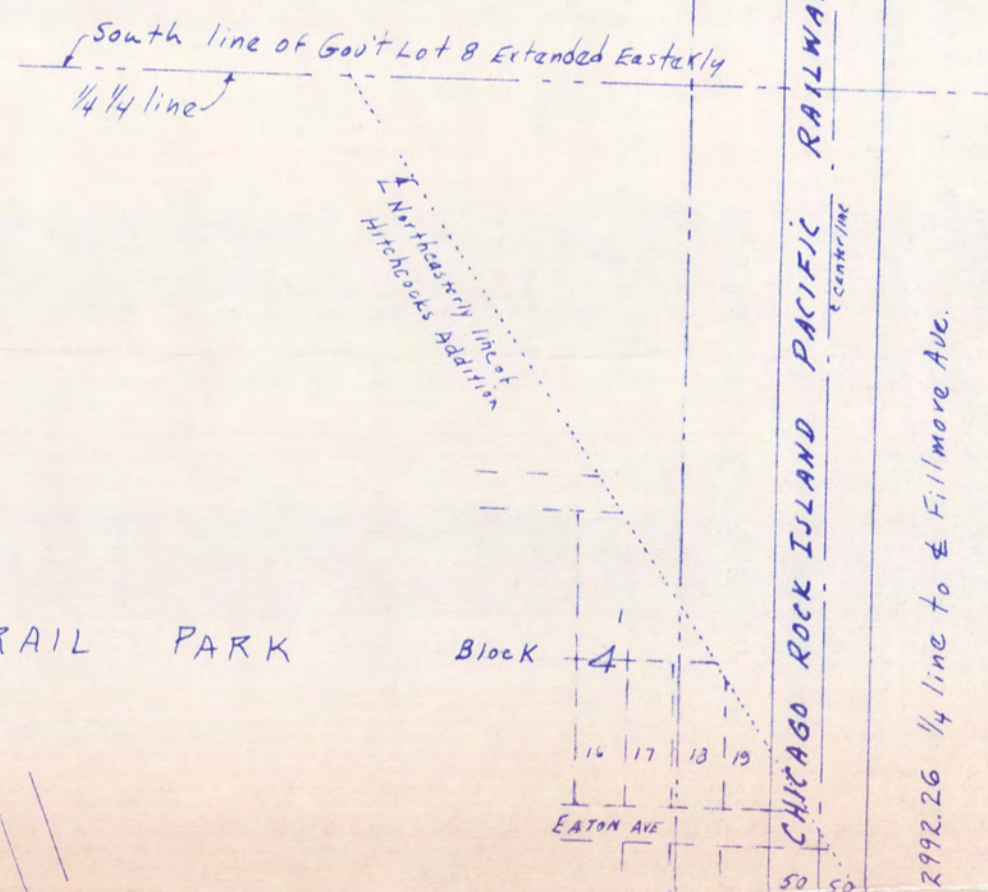 South line of Gov't Lot 8 Extended Easterly
1/4 1/4 line
Northeasterly line of
Hitchcocks Addition
CHICAGO ROCK ISLAND PACIFIC RAILWA
centerline
2992.26 1/4 line to ℄ Fillmore Ave.
RAIL PARK
Block 4
16 17 18 19
EATON AVE
50 50